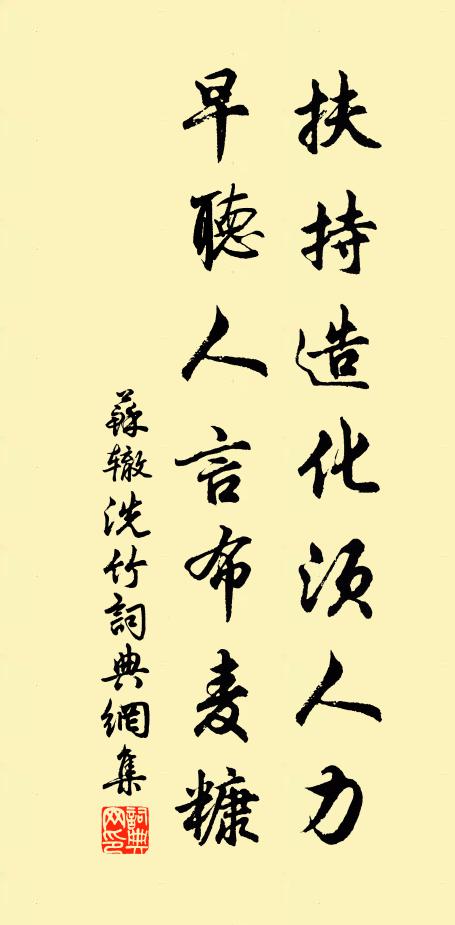 扶持造化须人力
早聴人言布麦糠
蘇辙洗竹詞典網集
詞典网印